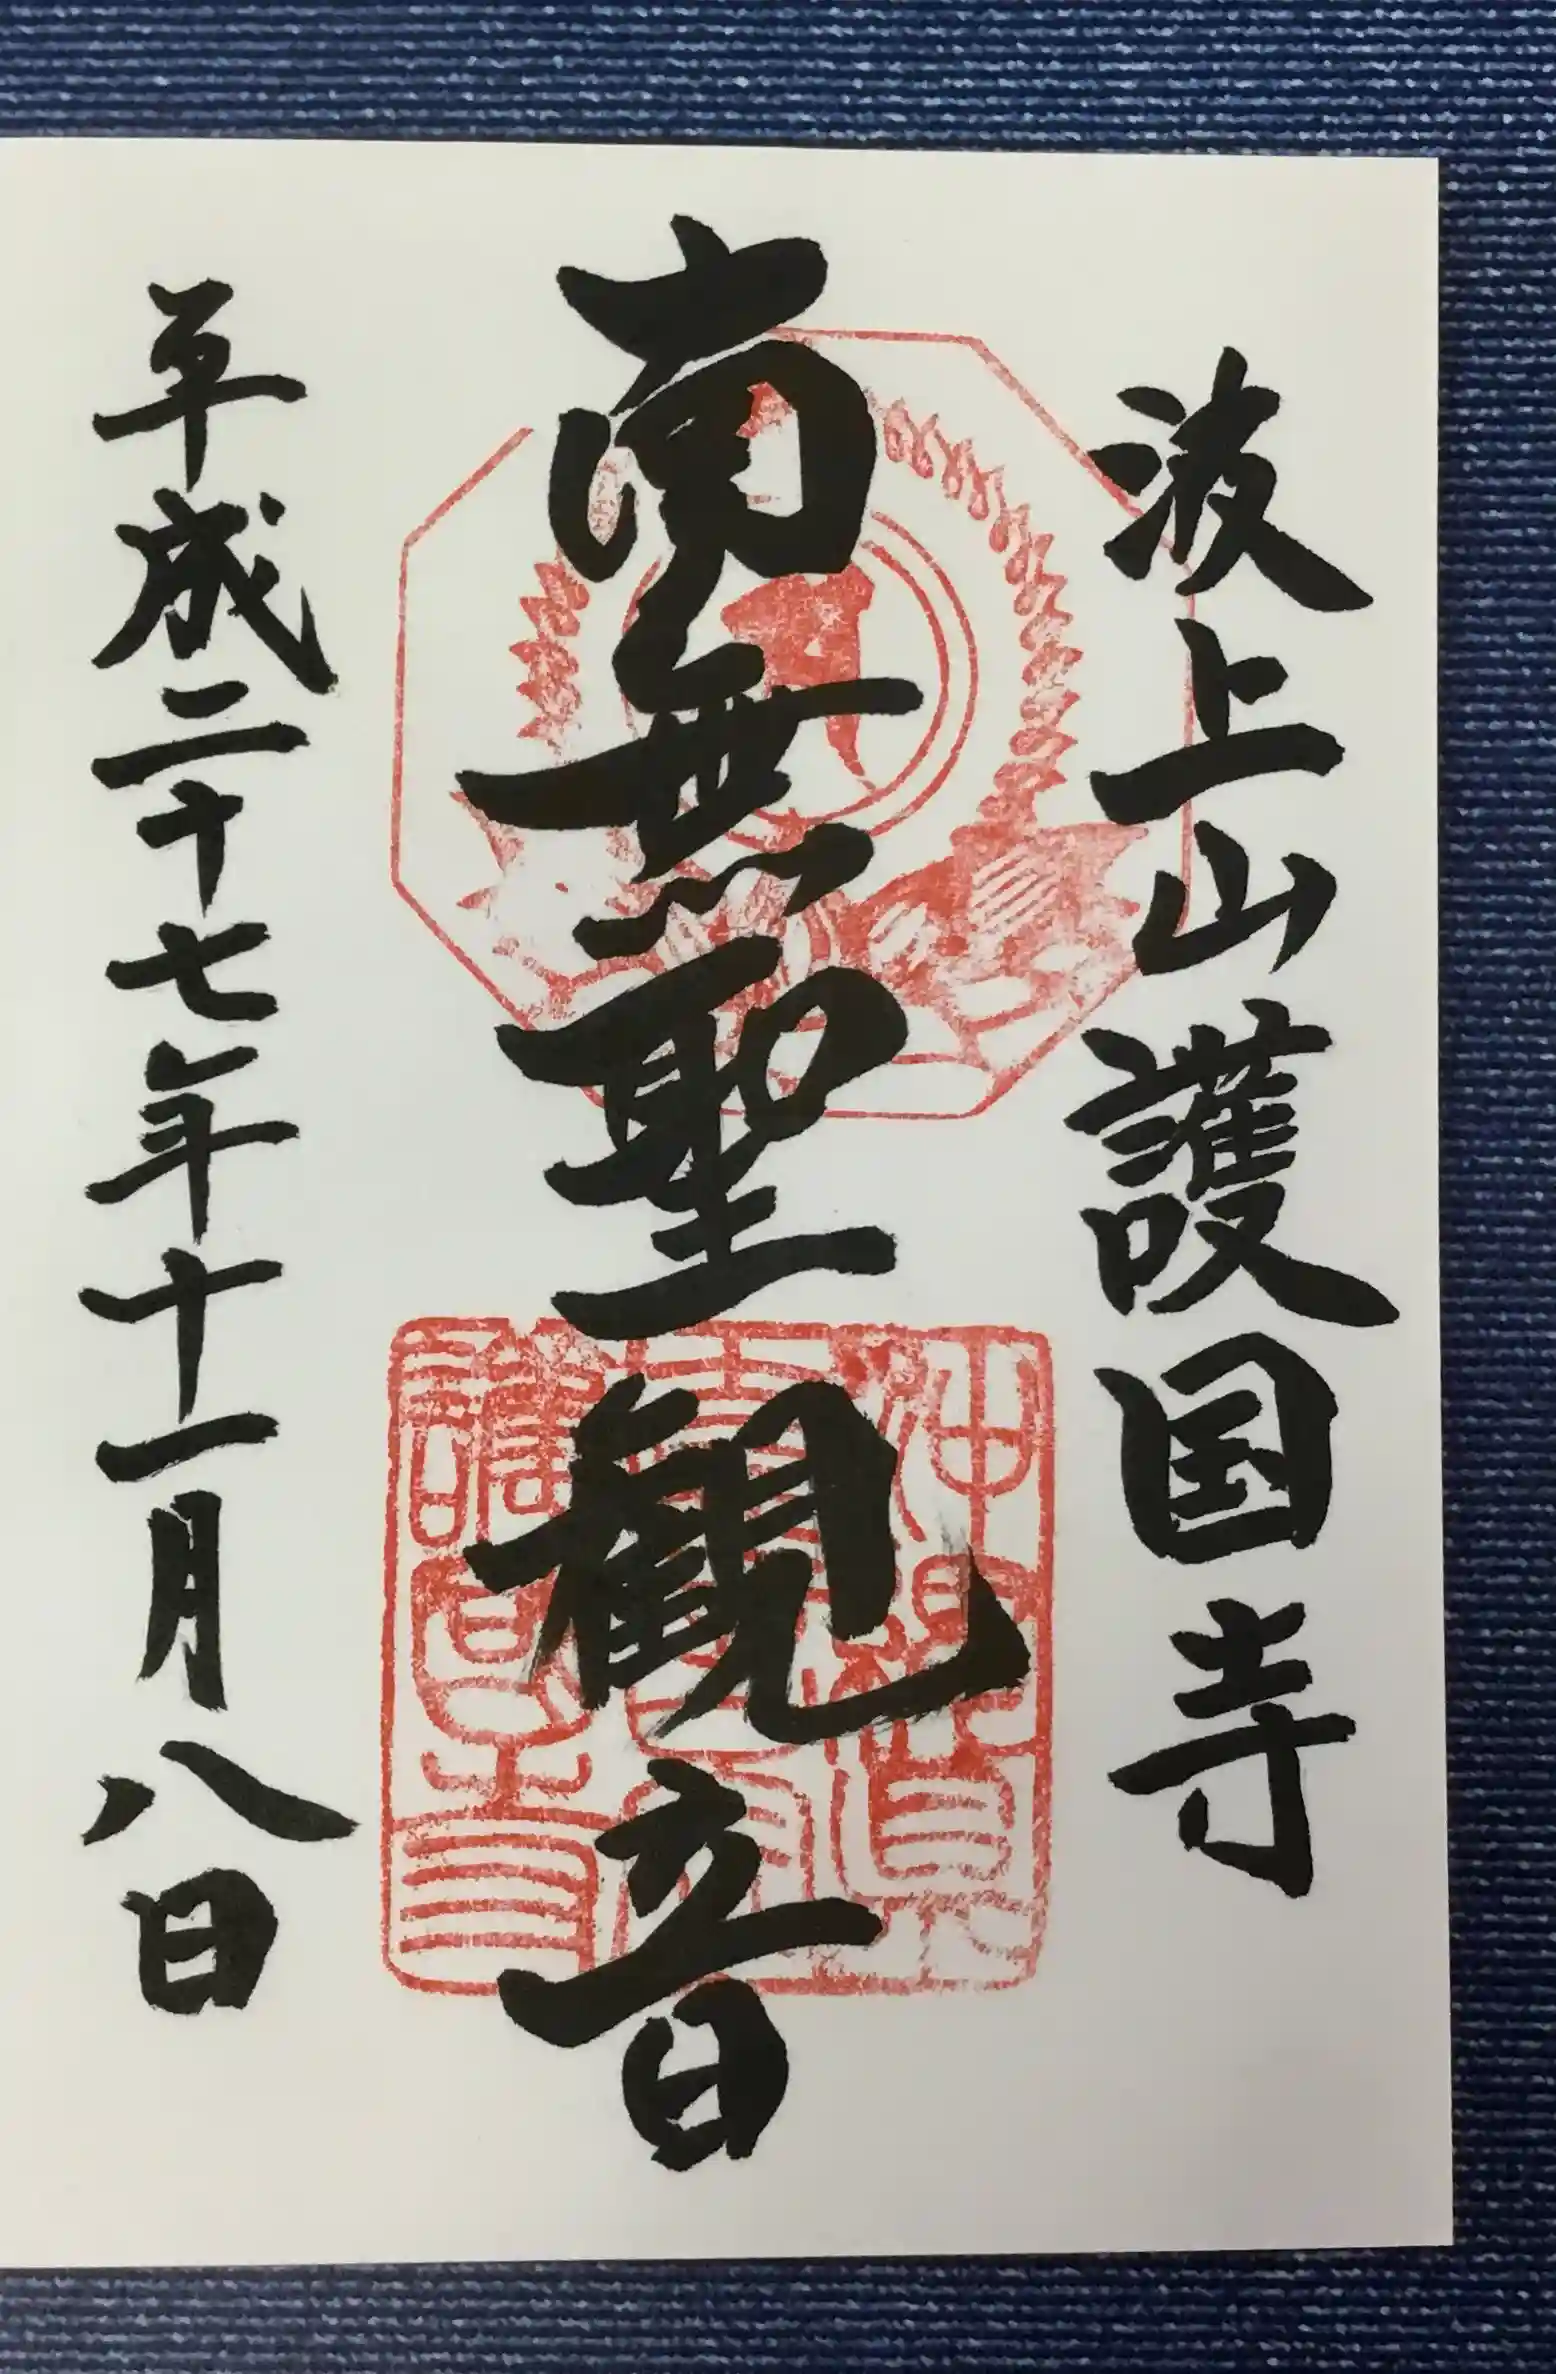 波上山護国寺
南無聖観音
平成二十七年十一月八日